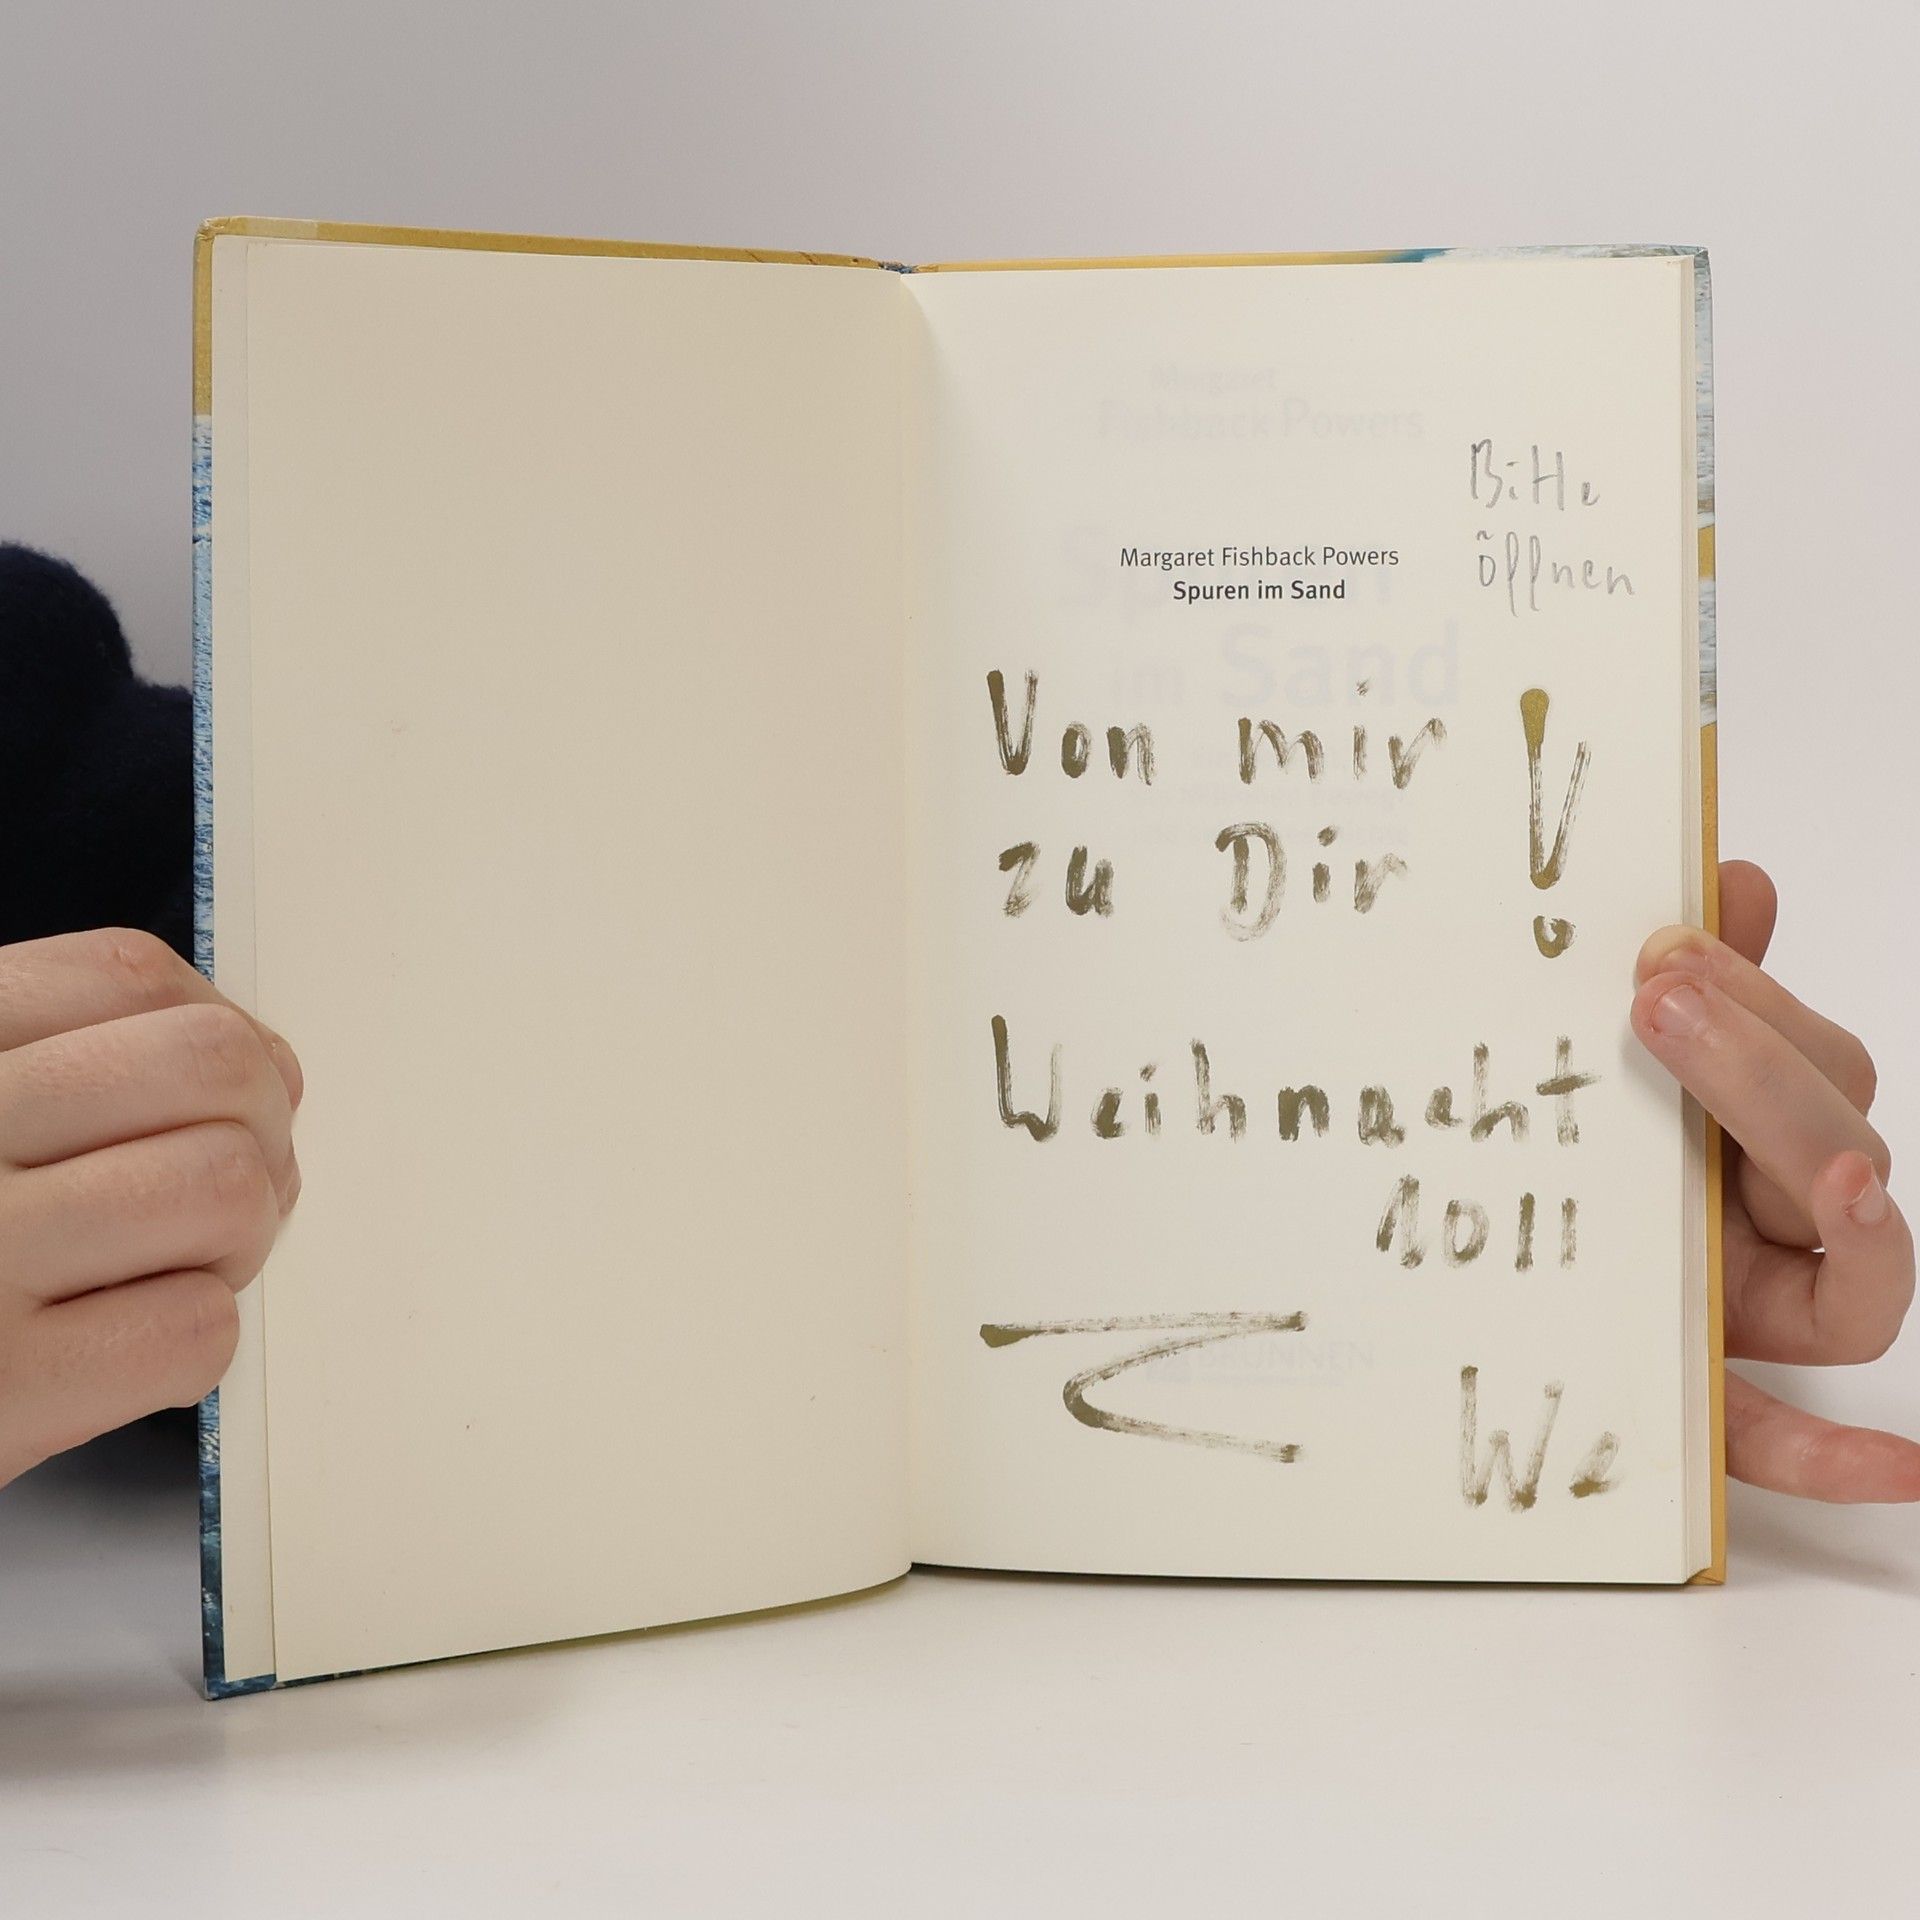 Margaret
Fishback Powers
Bitte
öffnen
Margaret Fishback Powers
Spuren im Sand
im Sand
Von mir
zu Dir !
Weihnacht
2011
BRUNNEN
We